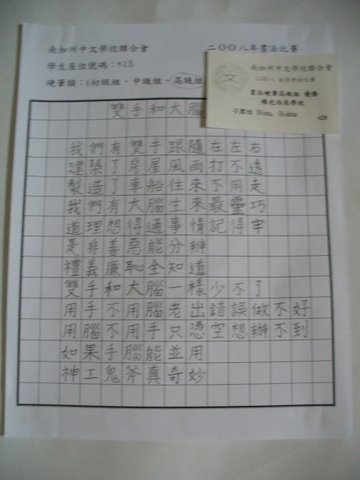 南加州中文學校聯合會
二〇〇八年書法比賽
學生座位號碼：420
硬筆組：(初級組、中級組、高級組
南加州中文學校聯合會
書法硬筆高級組 優勝
佛光西來學校
Dieu, Diana
420
雙手和大腦
我們有雙手跟隨在左右
建築了房屋風雨打不透
製造了車船往來不用走
我們有大腦生來最靈巧
道理想得通事情記得牢
是非善惡能分辨
禮義廉恥全知道
雙手和大腦一樣少不了
用手不用腦老出錯誤做不好
用腦不用手只憑空想辦不到
如果手腦能並用
神工鬼斧真奇妙